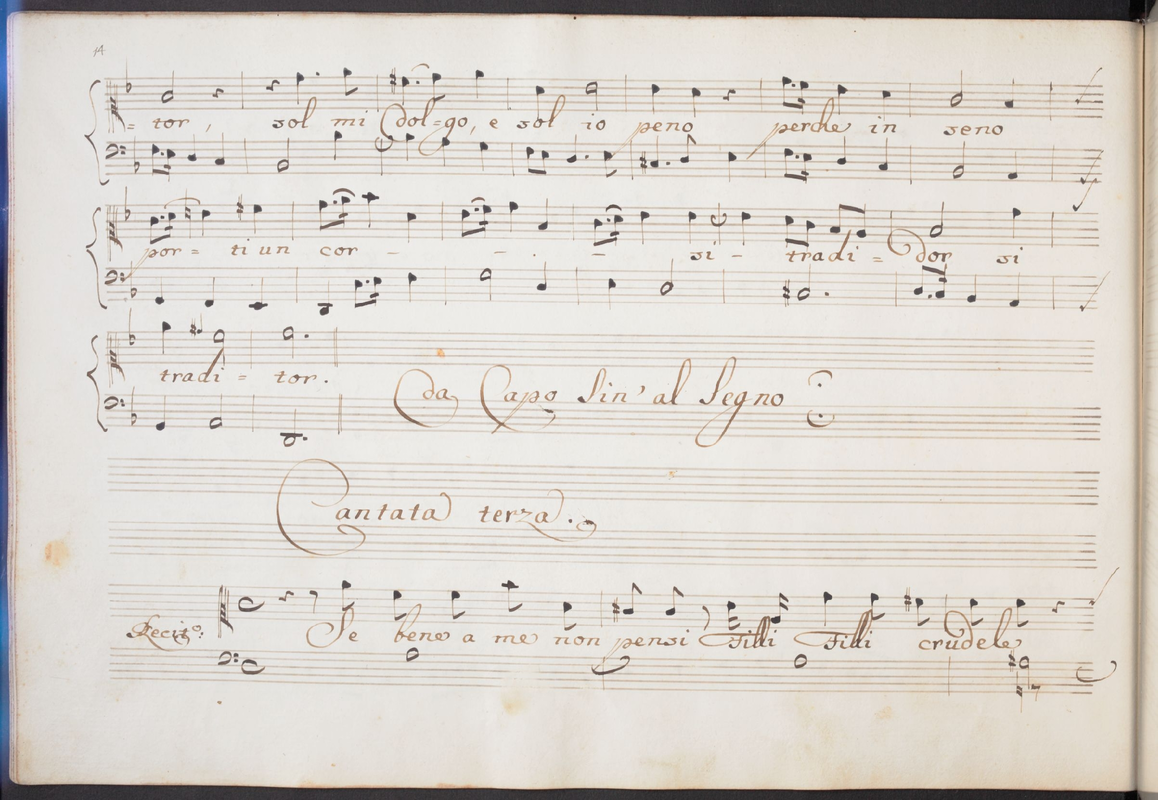 14
= tor, sol mi dol=go, e sol io peno perche in seno
por= ti un cor - - . - si - tradi = dor si
tradi = tor.
da Capo Sin' al Segno
Cantata terza.
Recit.º: Se bene a me non pensi Filli Filli crudele